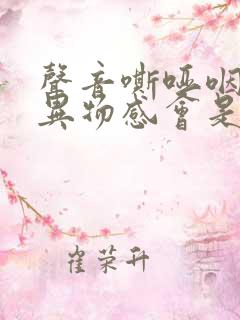 聲音嘶啞咽
異物感會是
崔荣升